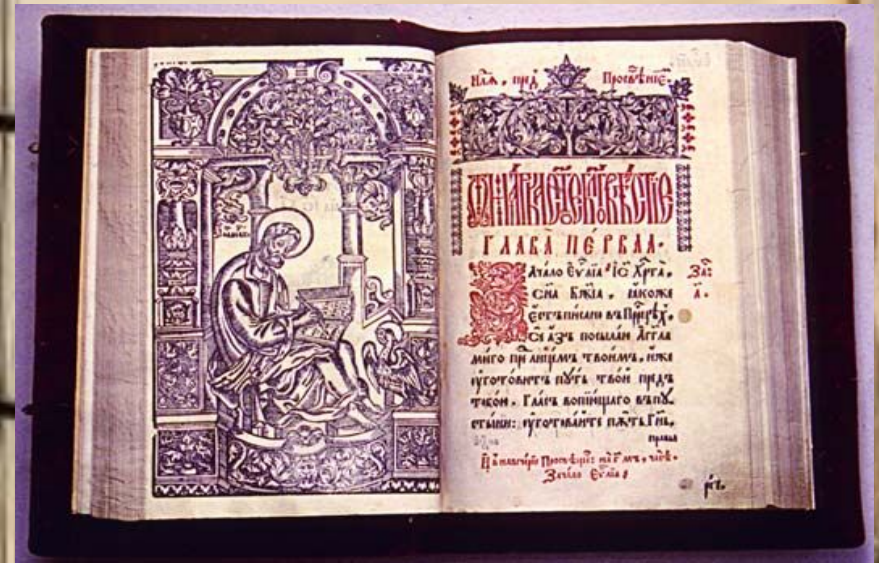 Нлѧ, пре҃д Просвѣщнїе.
ГЛАВА̀ ПЕ́РВАѦ.
Зачало Еѵⷢ҇лїа І҃с Хрⷭ҇та,
Сн҃а Бж҃їа, ꙗкоже
Естъ писано въ Прⷪ҇рцѣх,
Се азъ посылаю Аггл҃а
моего пред̾ лицемъ твоимъ, иже
ѹготовитъ пѹть твой предъ
тобою. Гласъ вопїющаго въ пꙋ
стыни: ѹготовайте пꙋть Гн҃ь,
правы
Просвѣщнїю: на г҃мъ, часѣ.
Зачало Еѵⷢ҇лїа